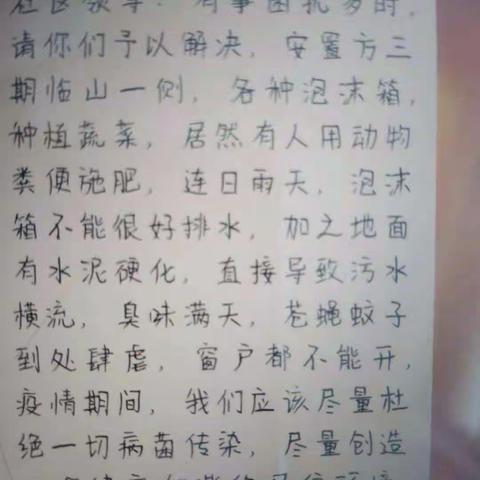 社区领导：有事困扰多时，
请你们予以解决，安置方三
期临山一侧，各种泡沫箱，
种植蔬菜，居然有人用动物
粪便施肥，连日雨天，泡沫
箱不能很好排水，加之地面
有水泥硬化，直接导致污水
横流，臭味满天，苍蝇蚊子
到处肆虐，窗户都不能开，
疫情期间，我们应该尽量杜
绝一切病菌传染，尽量创造